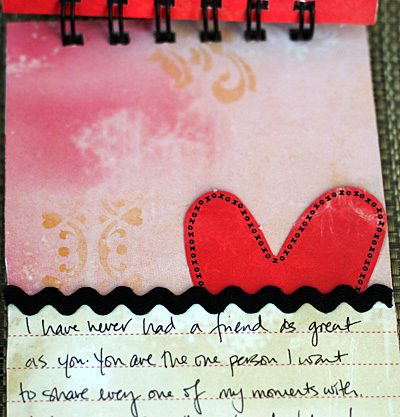 I have never had a friend as great
as you. You are the one person I want
to share every one of my moments with.